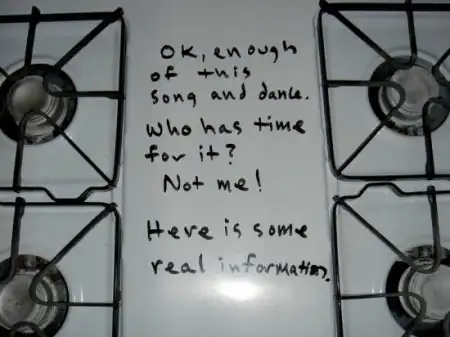 OK, enough
of this
song and dance.
Who has time
for it?
Not me!
Here is some
real information.